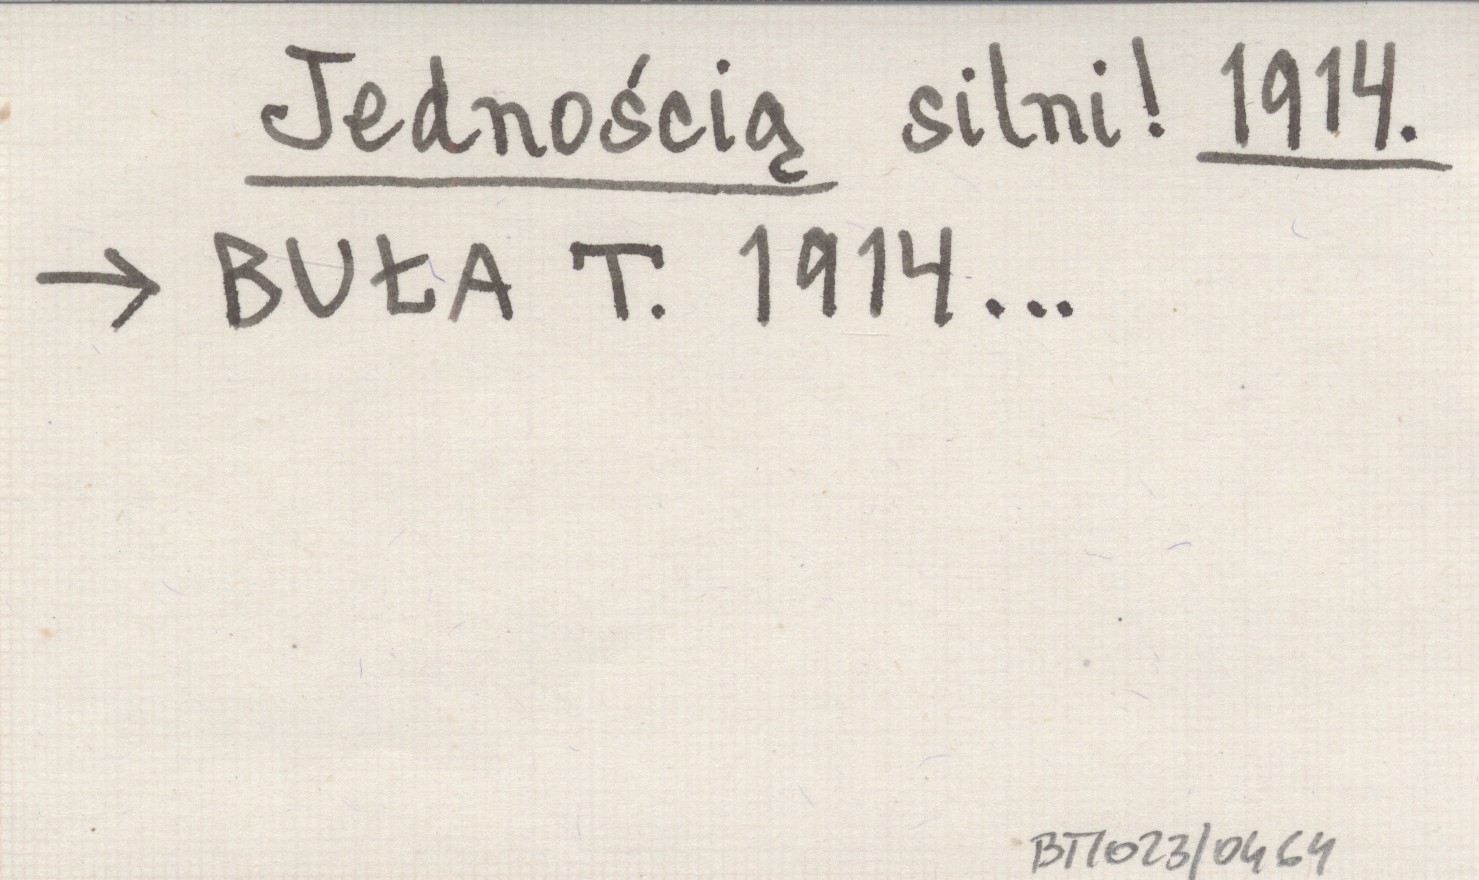 Jednością silni! 1914.
→ BUŁA T. 1914...
BTI023/0464